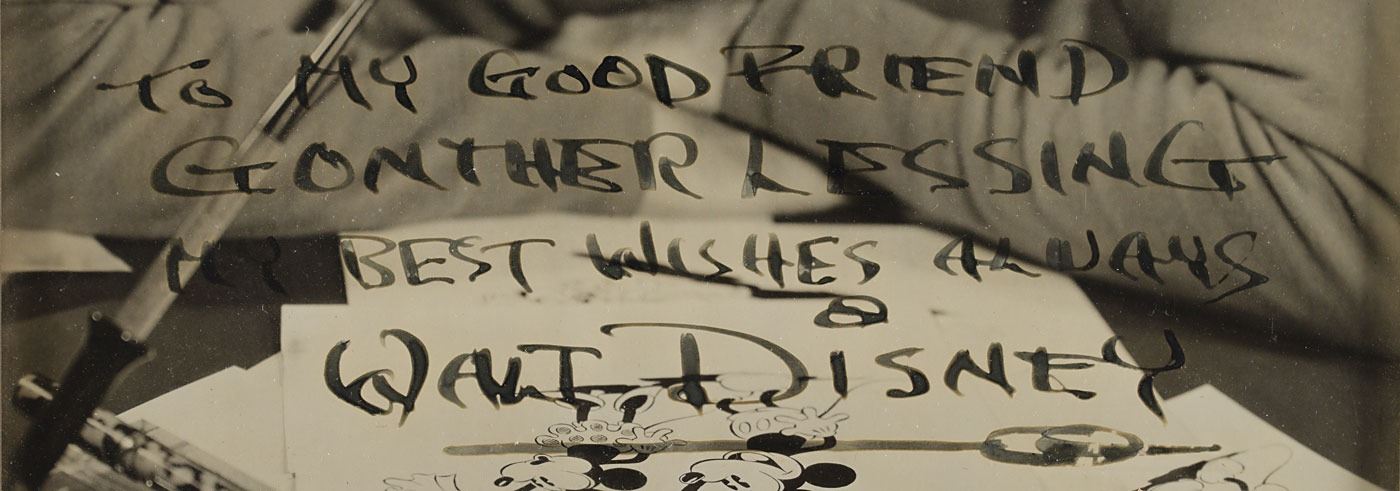 TO MY GOOD FRIEND
GONTHER LESSING
MY BEST WISHES ALWAYS
WALT DISNEY